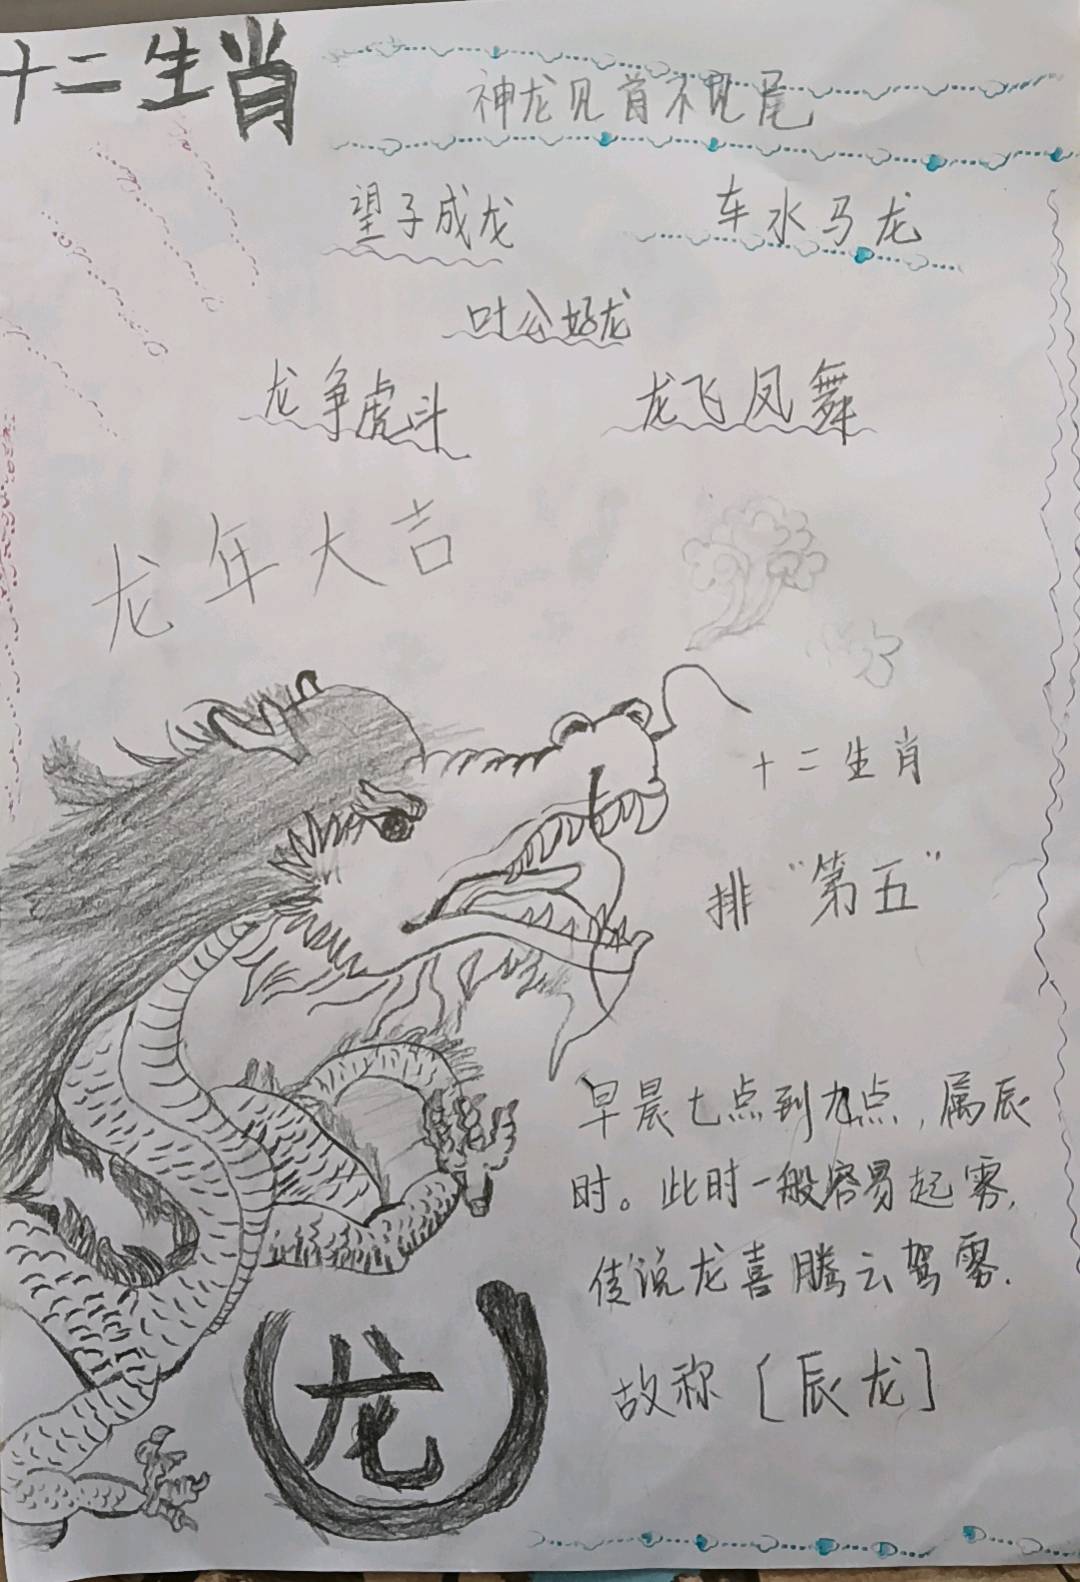 十二生肖
神龙见首不见尾
望子成龙
车水马龙
叶公好龙
龙争虎斗
龙飞凤舞
龙年大吉
十二生肖
排“第五”
早晨七点到九点，属辰
时。此时一般容易起雾，
传说龙喜腾云驾雾.
故称［辰龙］
龙